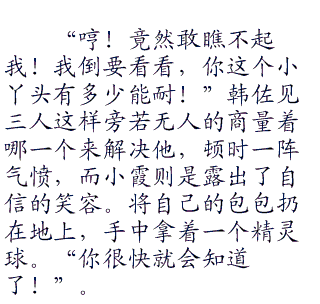 “哼！竟然敢瞧不起
我！我倒要看看，你这个小
丫头有多少能耐！”韩佐见
三人这样旁若无人的商量着
哪一个来解决他，顿时一阵
气愤，而小霞则是露出了自
信的笑容。将自己的包包扔
在地上，手中拿着一个精灵
球。“你很快就会知道
了！”。